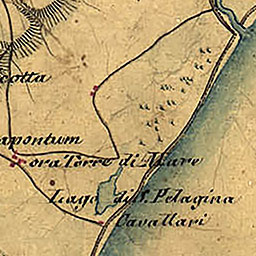 cotta
apontum
ora Torre di Mare
Lago di S. Pelagina
Cavallari